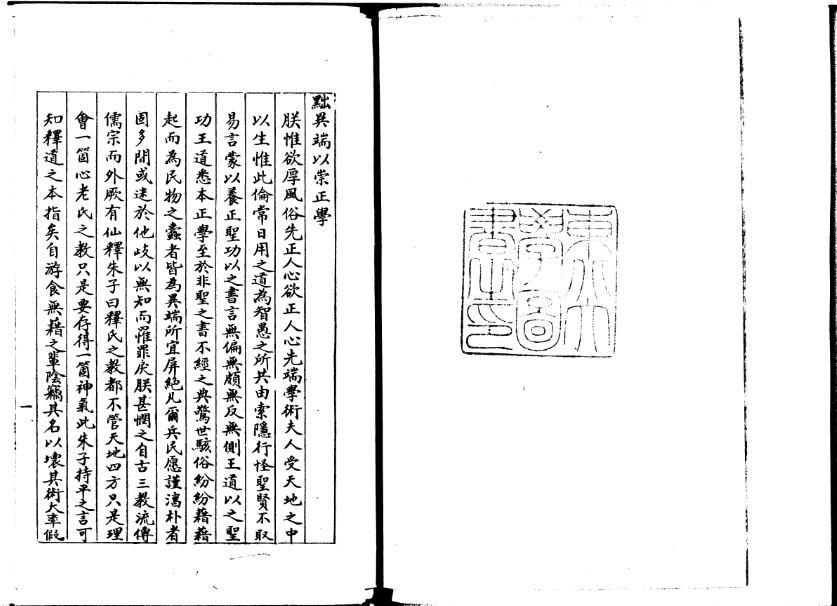 東北大
學圖
書之印
黜異端以崇正學
朕惟欲厚風俗先正人心欲正人心先端學術夫人受天地之中
以生惟此倫常日用之道為智愚之所共由索隱行怪聖賢不取
易言蒙以養正聖功以之書言無偏無頗無反無側王道以之聖
功王道悉本正學至於非聖之書不經之典驚世駭俗紛紛藉藉
起而為民物之蠹者皆為異端所宜屏絕凡爾兵民愿謹淳朴者
固多間或迷於他歧以無知而罹罪戾朕甚憫之自古三教流傳
儒宗而外厥有仙釋朱子曰釋氏之教都不管天地四方只是理
會一箇心老氏之教只是要存得一箇神氣此朱子持平之言可
知釋道之本指矣自游食無藉之輩陰竊其名以壞其術大率假
一